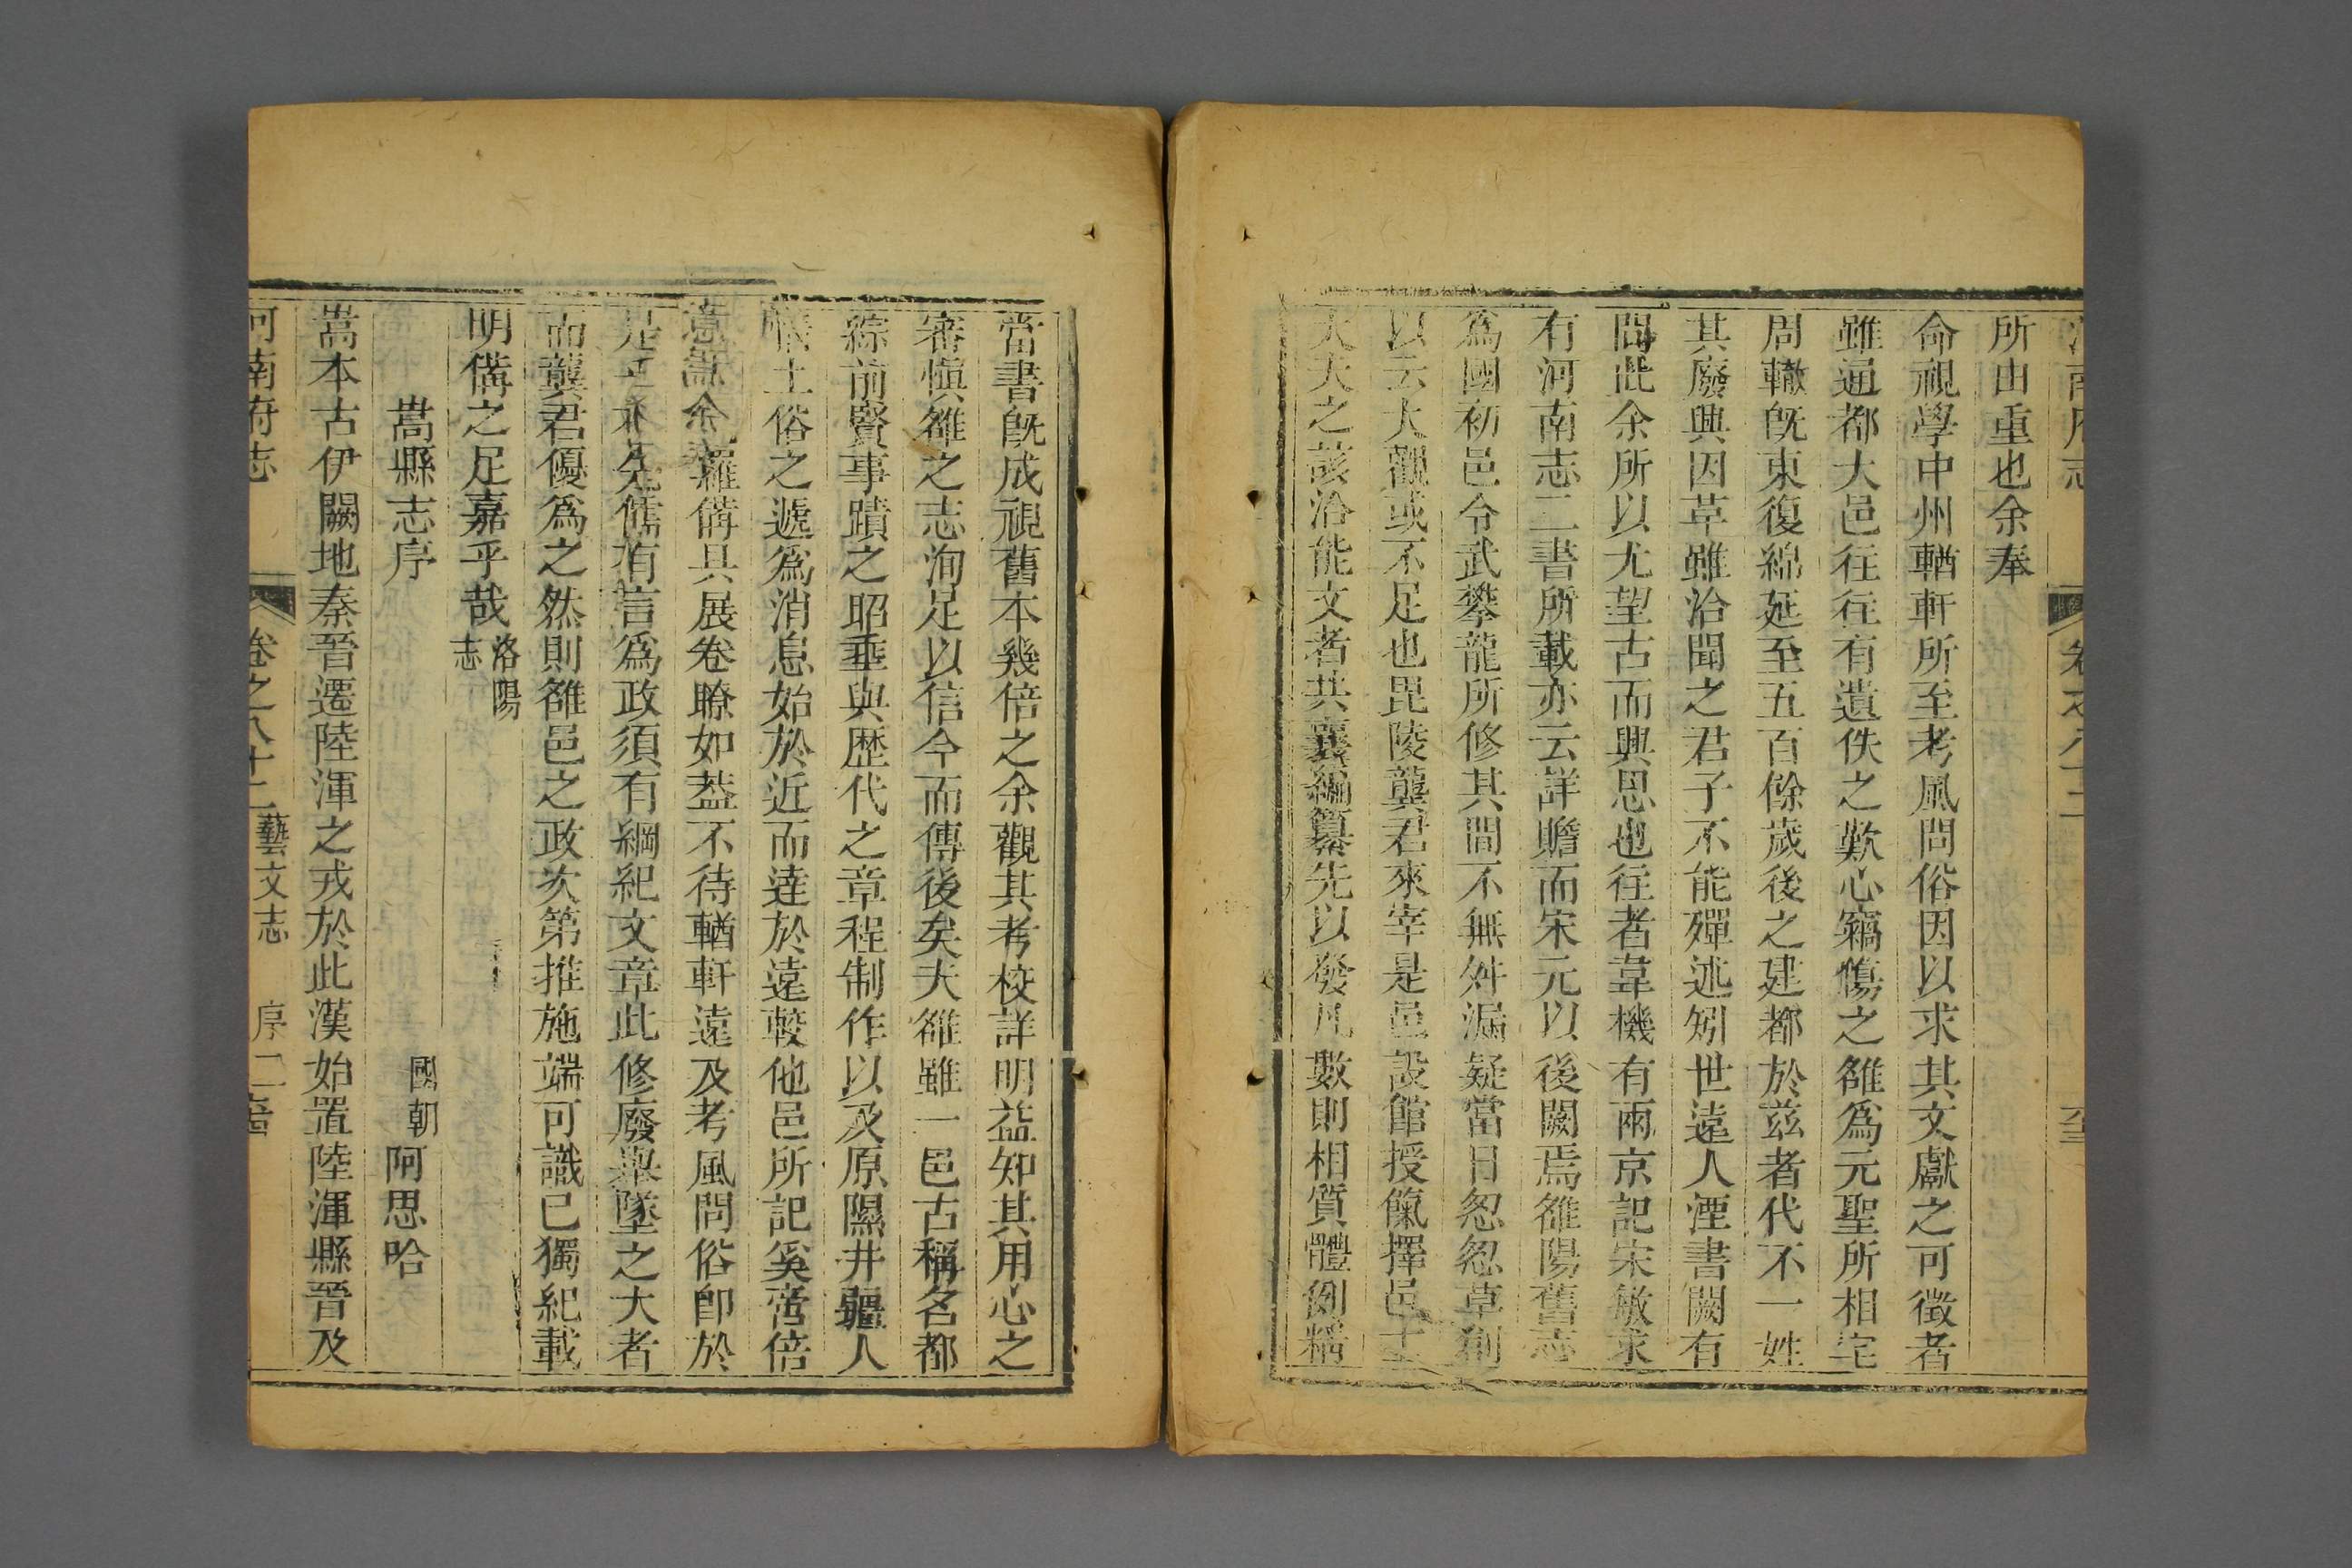 河南府志 卷之八十二
所由重也余奉
命視學中州輶軒所至考風問俗因以求其文獻之可徵者
雖通都大邑往往有遺佚之歎心竊傷之雒爲元聖所相宅
周轍旣東復綿延至五百餘歲後之建都於茲者代不一姓
其廢興因革雖洽聞之君子不能殫述矧世遠人湮書闕有
間此余所以尤望古而興思也往者韋機有兩京記宋敏求
有河南志二書所載亦云詳贍而宋元以後闕焉雒陽舊志
爲國初邑令武攀龍所修其間不無舛漏疑當日怱怱草創
以云大觀或不足也毘陵龔君來宰是邑設館授餼擇邑士
大夫之該洽能文者共襄編纂先以發凡數則相質體例精
當書旣成視舊本幾倍之余觀其考校詳明益知其用心之
審愼雒之志洵足以信今而傳後矣夫雒雖一邑古稱名都
綜前賢事蹟之昭垂與歷代之章程制作以及原隰井疆人
情土俗之遞爲消息始於近而逹於遠較他邑所記奚啻倍
蓰余羅備具展卷瞭如葢不待輶軒遠及考風問俗卽於
是先儒有言爲政須有綱紀文章此修廢舉墜之大者
而龔君優爲之然則雒邑之政次第推施端可識已獨紀載
明備之足嘉乎哉 洛陽志
嵩縣志序
國朝 阿思哈
嵩本古伊闕地秦晉遷陸渾之戎於此漢始置陸渾縣晉及
河南府志 卷之八十二 藝文志 序二